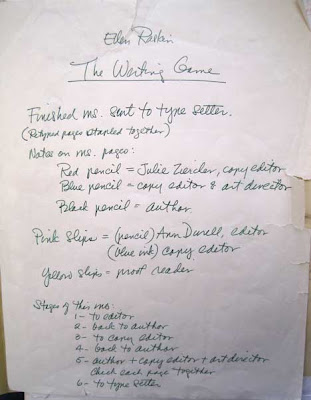 Ellen Raskin
The Westing Game
Finished ms. sent to type setter.
(Retyped pages stapled together)
Notes on ms. pages:
Red pencil = Julie copy editor
Blue pencil = copy editor & art director
Black pencil = author.
Pink slips = (pencil) Ann Durell, editor
(blue ink) copy editor
Yellow slips = proof reader
Stages of this ms:
1- to editor
2- back to author
3- to copy editor
4- back to author
5- author + copy editor + art director
check each page together
6- to type setter